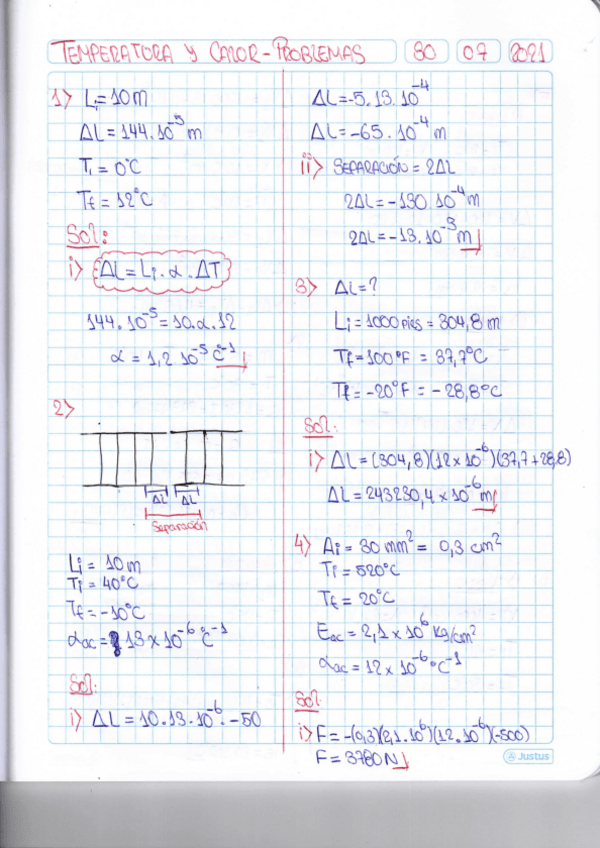 TEMPERATURA Y CALOR-PROBLEMAS 30 07 2021
1> Li=10m
ΔL=144.10^-5 m
Ti=0°C
Tf=12°C
Sol:
i> ΔL=Li.α.ΔT
144.10^-5=10.α.12
α=1,2 10^-5 C^-1
2>
ΔL ΔL
Separación
Li=10m
Ti=40°C
Tf=-10°C
αac=13x10^-6 °C^-1
Sol:
i> ΔL=10.13.10^-6.-50
ΔL=-5.13.10^-4
ΔL=-65.10^-4 m
ii> SEPARACIÓN=2ΔL
2ΔL=-130.10^-4 m
2ΔL=-13.10^-3 m
3> ΔL=?
Li=1000 pies=304,8 m
Tf=100°F=37,7°C
Tf=-20°F=-28,8°C
Sol:
i> ΔL=(304,8)(12x10^-6)(37,7+28,8)
ΔL=243230,4x10^-6 m
4> Ai=30 mm²=0,3 cm²
Ti=520°C
Tf=20°C
Eac=2,1x10^6 kg/cm²
αac=12x10^-6 °C^-1
Sol:
i> F=-(0,3)(2,1.10^6)(12.10^-6)(-500)
F=3780N
Justus